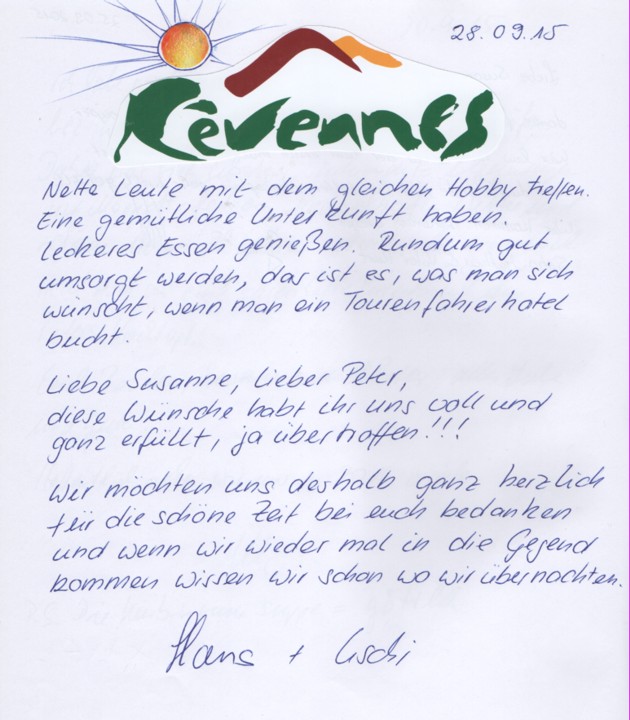 28.09.15
Cévennes
Nette Leute mit dem gleichen Hobby treffen.
Eine gemütliche Unterkunft haben.
Leckeres Essen genießen. Rundum gut
umsorgt werden, das ist es, was man sich
wünscht, wenn man ein Tourenfahrerhotel
bucht.
Liebe Susanne, Lieber Peter,
diese Wünsche habt ihr uns voll und
ganz erfüllt, ja übertroffen!!!
Wir möchten uns deshalb ganz herzlich
für die schöne Zeit bei euch bedanken
und wenn wir wieder mal in die Gegend
kommen wissen wir schon wo wir übernachten.
Hans + Uschi